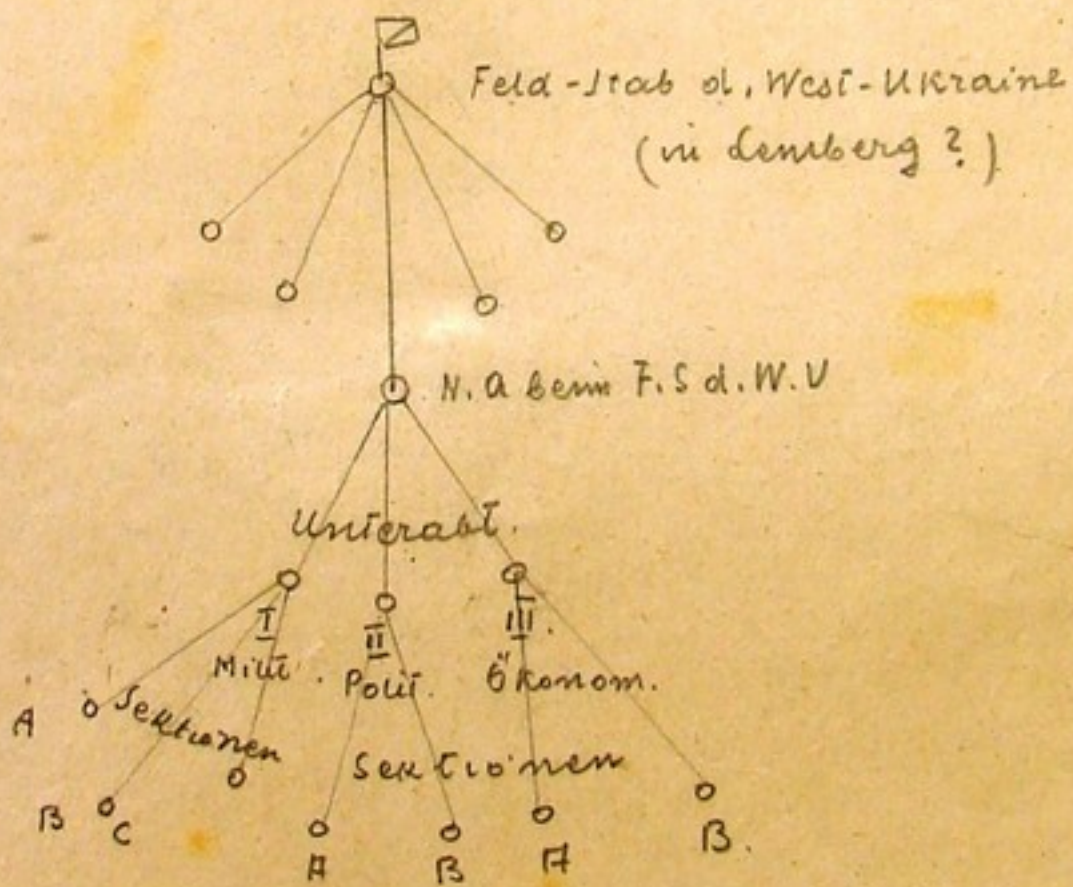 Feld-Stab d. West-Ukraine
(in Lemberg ?)
N. A beim F. S d. W. U
Unterabt.
I
Milit.
II
Polit.
III.
Ökonom.
A
Sektionen
B
C
Sektionen
A
B
A
B.